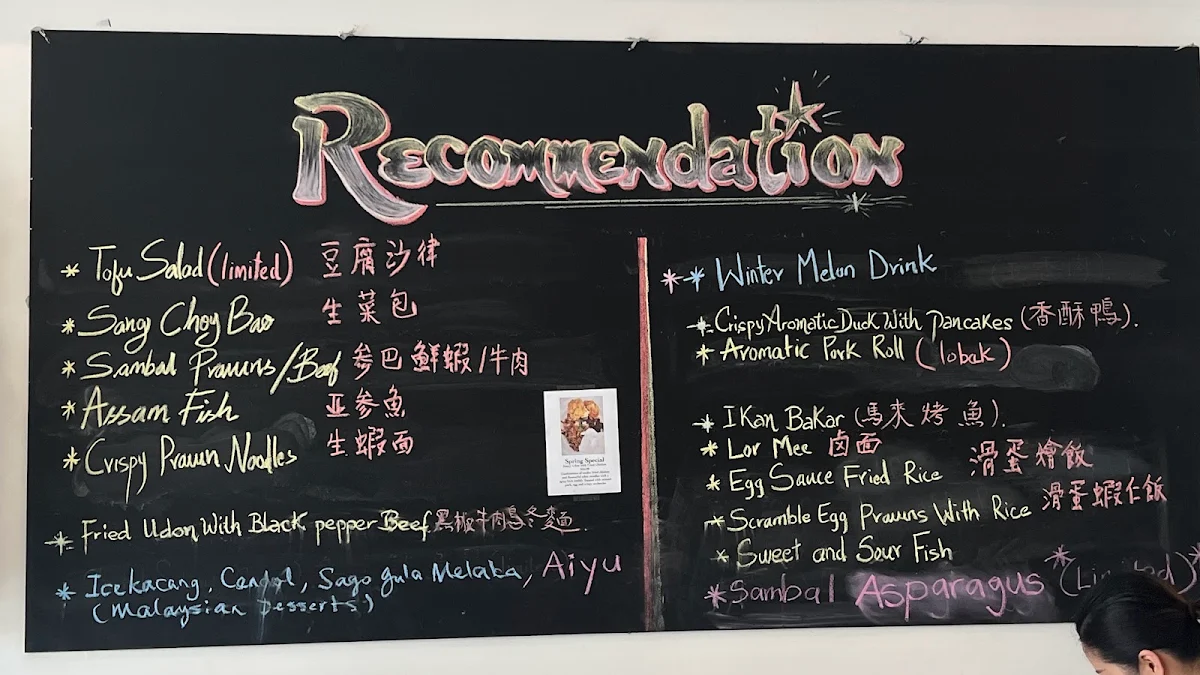 Recommendation
* Tofu Salad (limited) 豆腐沙律
* Sang Choy Bao 生菜包
* Sambal Prawns/Beef 参巴鮮蝦/牛肉
* Assam Fish 亚参魚
* Crispy Prawn Noodles 生蝦面
Spring Special
* Fried Udon With Black pepper Beef 黑椒牛肉烏冬麵.
* Icekacang, Cendol, Sago gula Melaka, Aiyu
(Malaysian Desserts)
** Winter Melon Drink
* Crispy Aromatic Duck With Pancakes (香酥鴨).
* Aromatic Pork Roll (lobak)
* IKan BaKar (馬來烤魚).
* Lor Mee 卤面
* Egg Sauce Fried Rice 滑蛋燴飯
* Scramble Egg Prawns With Rice 滑蛋蝦仁飯
* Sweet and Sour Fish
* Sambal Asparagus * (Limited) *